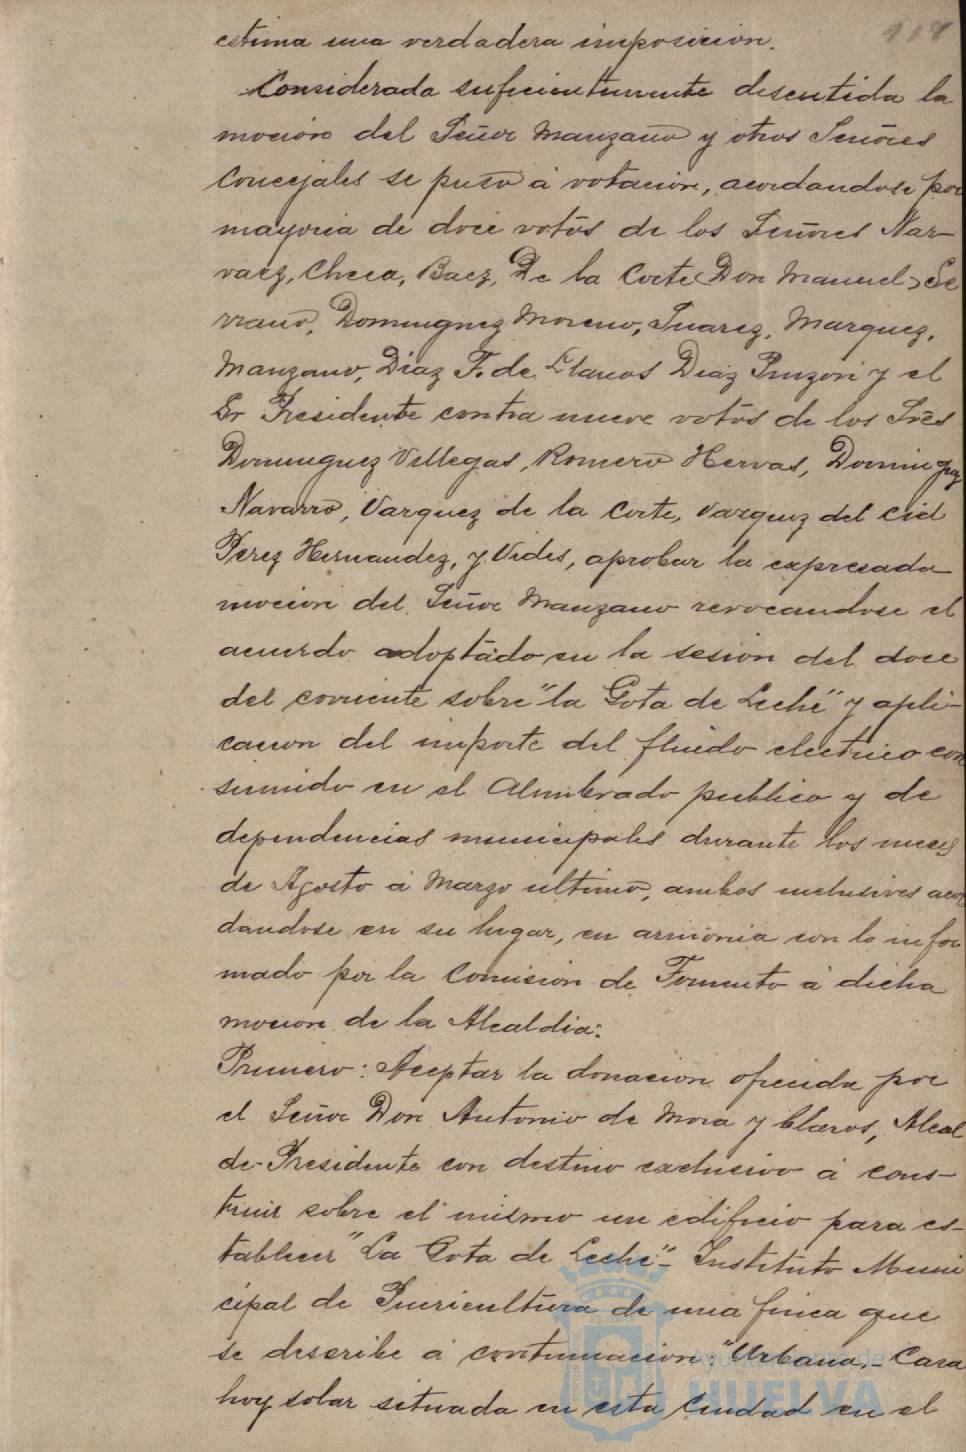 118
estima una verdadera imposición.
Considerada suficientemente discutida la
moción del Señor Manzano y otros Señores
Concejales se puso á votación, acordandose por
mayoria de doce votos de los Señores Nar-
vaez, Checa, Baez, De la Corte (Don Manuel) Se
rrano, Dominguez Moreno, Suarez, Marquez,
Manzano, Diaz F. de Llanos Diaz Pinzon y el
Sr Presidente contra nueve votos de los Sres
Dominguez Villegas, Romero Hervas, Dominguez
Navarro, Vazquez de la Corte, Vazquez del Cid
Perez Hernandez, y Vides, aprobar la expresada
mocion del Señor Manzano revocandose el
acuerdo adoptado en la sesion del doce
del corriente sobre "la Gota de Leche" y apli-
cacion del importe del fluido electrico con
sumido en el Alumbrado publico y de
dependencias municipales durante los meses
de Agosto á Marzo ultimo, ambos inclusives acor
dandose en su lugar, en armonia con lo infor
mado por la Comision de Fomento á dicha
mocion de la Alcaldia:
Primero: Aceptar la donacion ofrecida por
el Señor Don Antonio de Mora y Claros, Alcal
de-Presidente con destino exclusivo á cons-
truir sobre el mismo un edificio para es-
tablecer "La Gota de Leche"- Instituto Muni
cipal de Puericultura de una finca que
se describe á continuacion: "Urbana.- Casa
hoy solar situada en esta Ciudad en el
Ayuntamiento de
HUELVA